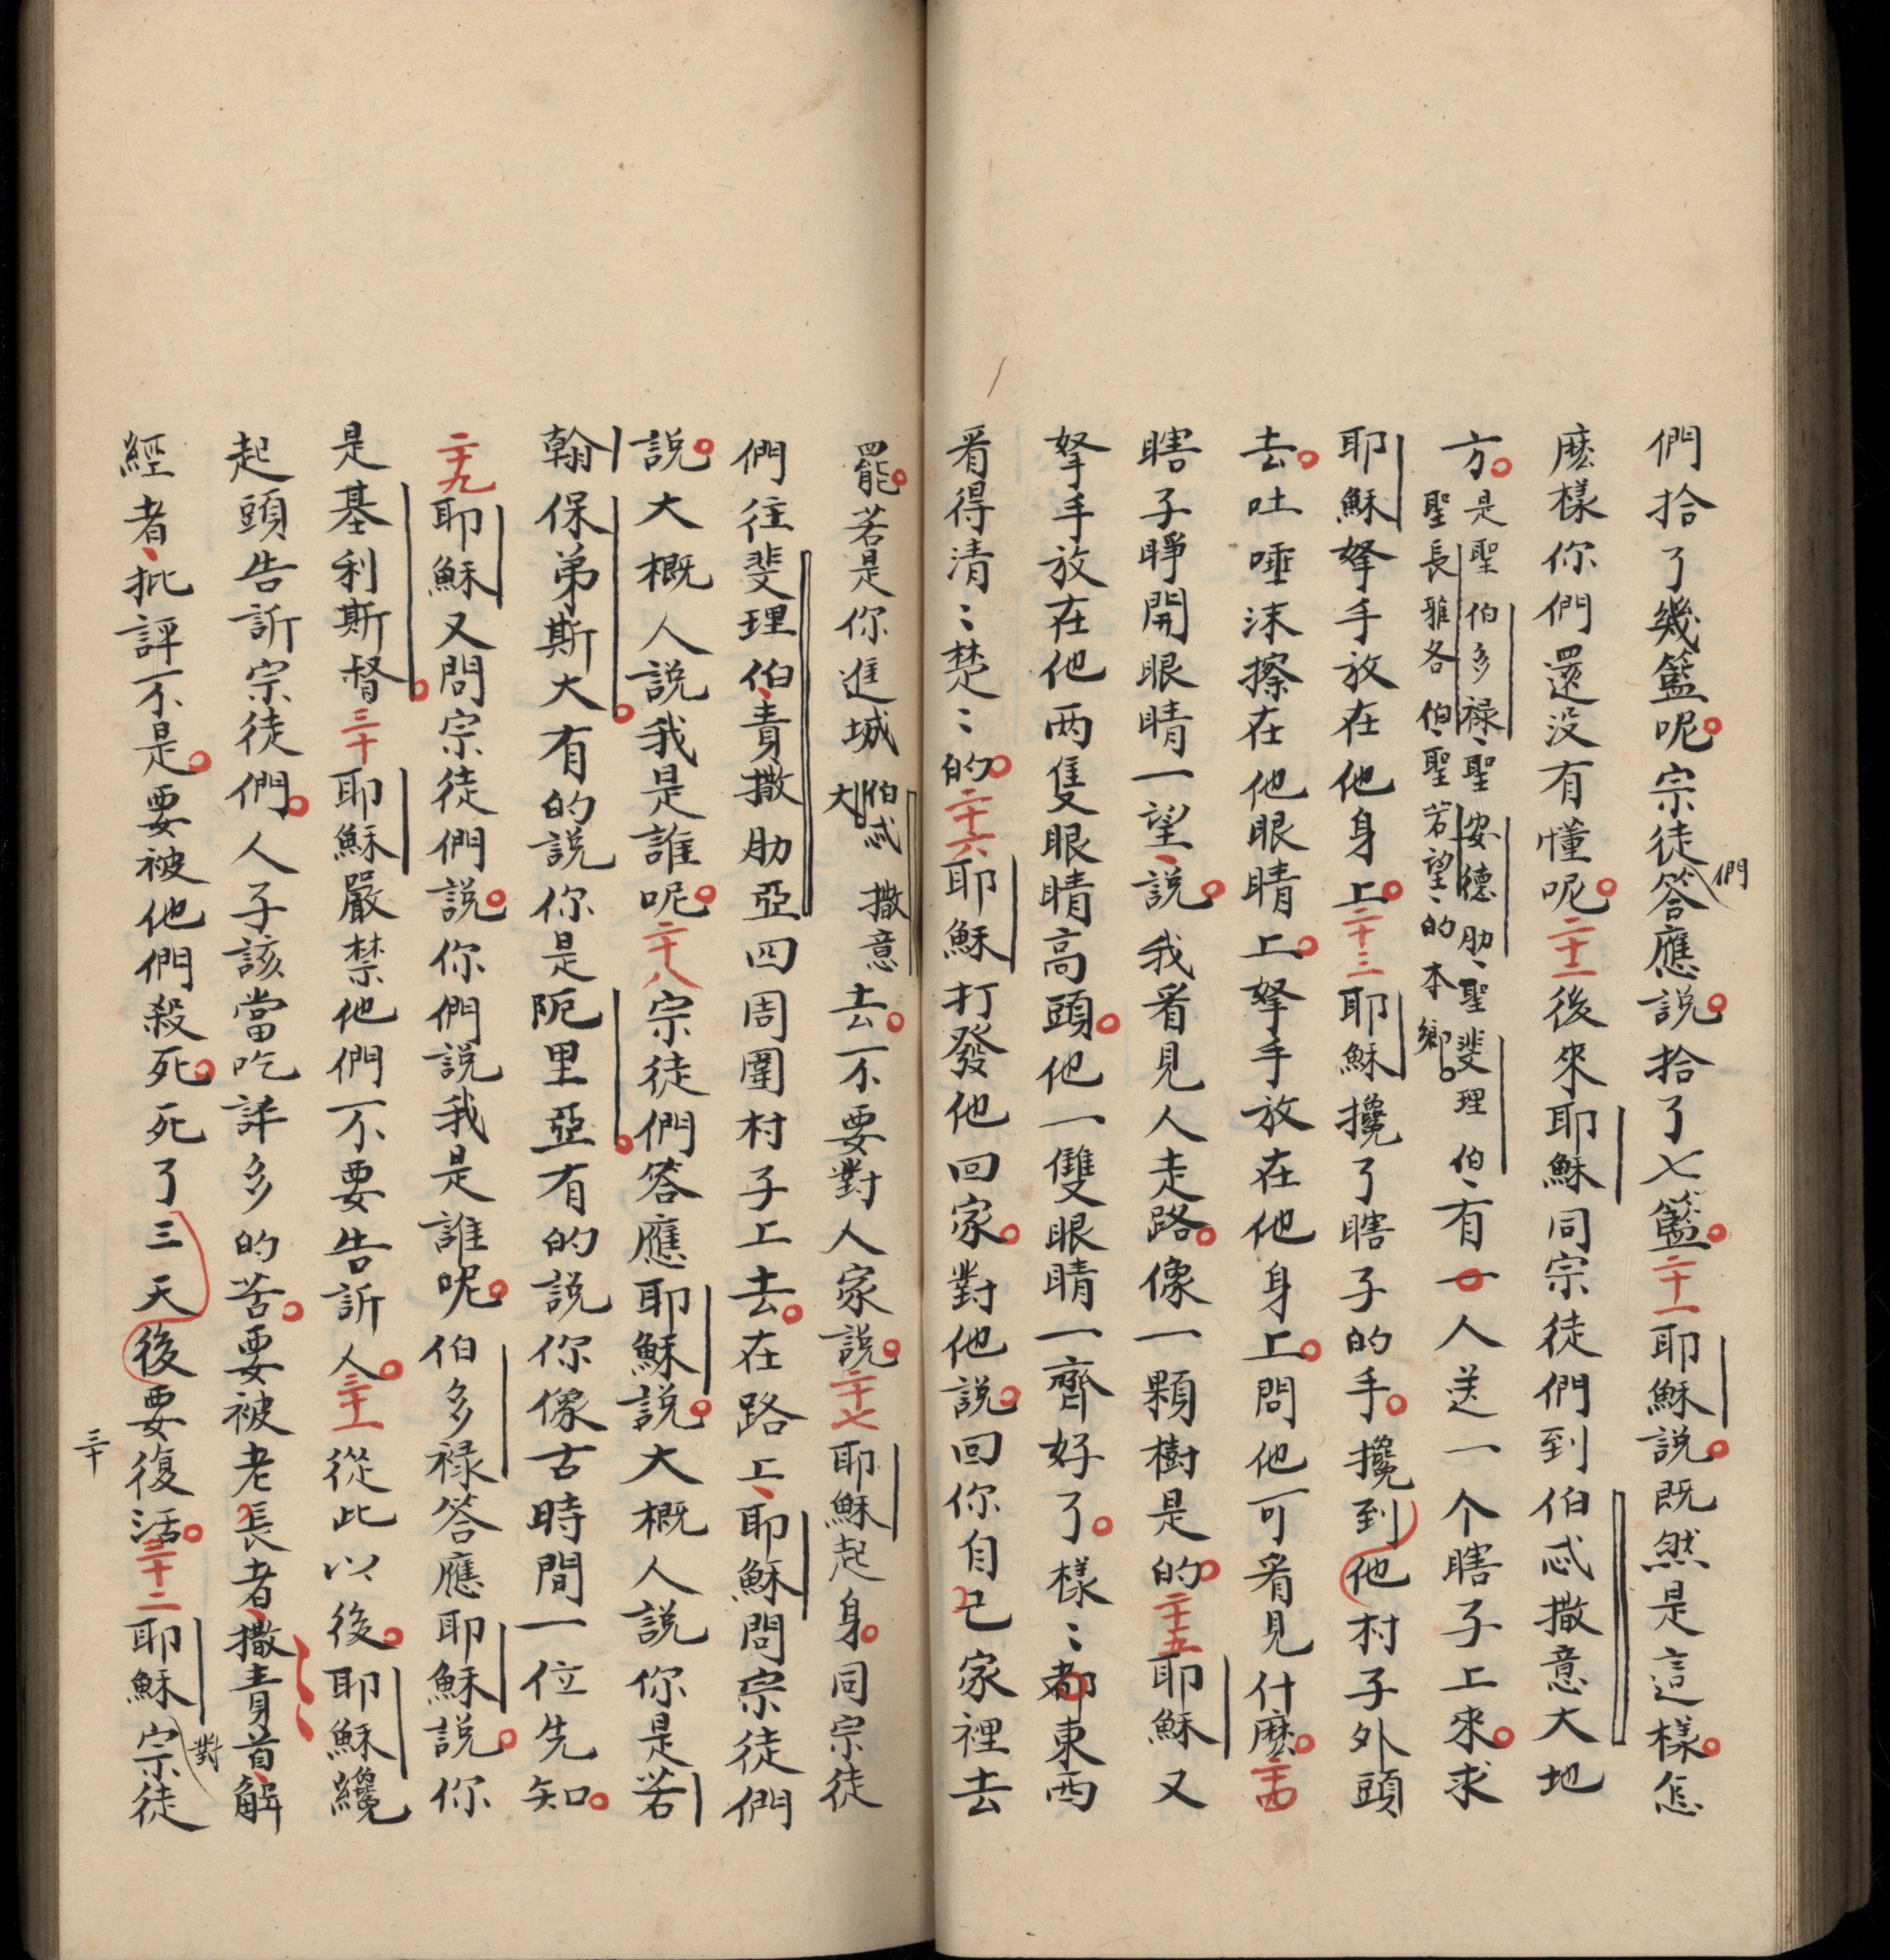 們拾了幾籃呢。宗徒們答應說。拾了七籃。二十一耶穌說。既然是這樣。怎
麽樣你們還没有懂呢。二十二後來耶穌同宗徒們到伯忒撒意大地
方。是聖伯多禄、聖安德肋、聖斐理伯、
聖長雅各伯、聖若望、的本鄉。
有一人送一个瞎子上來。求
耶穌拏手放在他身上。二十三耶穌攙了瞎子的手。攙到他村子外頭
去。吐唾沫擦在他眼睛上。拏手放在他身上。問他可看見什麽。二十四
瞎子睁開眼睛一望、說。我看見人走路。像一顆樹是的。二十五耶穌又
拏手放在他两隻眼睛高頭。他一雙眼睛一齊好了。樣〻都東西
看得清〻楚〻的。二十六耶穌打發他回家。對他說。回你自己家裡去
罷。若是你進城伯忒撒意
大
去。不要對人家說。二十七耶穌起身。同宗徒
們往斐理伯、責撒肋亞四周圍村子上去。在路上、耶穌問宗徒們
說。大概人說我是誰呢。二十八宗徒們答應耶穌說。大概人說你是若
翰保弟斯大。有的說你是阨里亞。有的說你像古時間一位先知。
二十九耶穌又問宗徒們說。你們說我是誰呢。伯多禄答應耶穌說。你
是基利斯督。三十耶穌嚴禁他們不要告訴人。三十一從此以後。耶穌纔
起頭告訴宗徒們。人子該當吃許多的苦。要被老長者、撒責首、解
經者、批評不是。要被他們殺死。死了三天後要復活。三十二耶穌對宗徒
三十